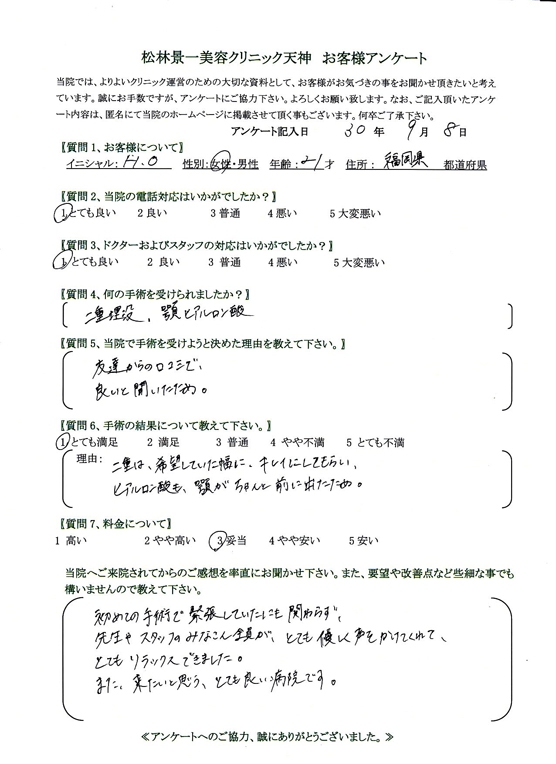 松林景一美容クリニック天神　お客様アンケート
当院では、よりよいクリニック運営のための大切な資料として、お客様がお気づきの事をお聞かせ頂きたいと考え
ています。誠にお手数ですが、アンケートにご協力下さい。よろしくお願い致します。なお、ご記入頂いたアンケ
ート内容は、匿名にて当院のホームページに掲載させて頂く事もございます。何卒ご了承下さい。
アンケート記入日　30 年　9 月　8 日
〖質問 1、お客様について〗
イニシャル: H.O　性別: 女性・男性　年齢: 21 才　住所: 福岡県　都道府県
〖質問 2、当院の電話対応はいかがでしたか？〗
1 とても良い　2 良い　3 普通　4 悪い　5 大変悪い
〖質問 3、ドクターおよびスタッフの対応はいかがでしたか？〗
1 とても良い　2 良い　3 普通　4 悪い　5 大変悪い
〖質問 4、何の手術を受けられましたか？〗
二重埋没、顎ヒアルロン酸
〖質問 5、当院で手術を受けようと決めた理由を教えて下さい。〗
友達からの口コミで、
良いと聞いたため。
〖質問 6、手術の結果について教えて下さい。〗
1 とても満足　2 満足　3 普通　4 やや不満　5 とても不満
理由: 二重は、希望していた幅に、キレイにしてもらい、
ヒアルロン酸も、顎がちゃんと前に出たため。
〖質問 7、料金について〗
1 高い　2 やや高い　3 妥当　4 やや安い　5 安い
当院へご来院されてからのご感想を率直にお聞かせ下さい。また、要望や改善点など些細な事でも
構いませんので教えて下さい。
初めての手術で緊張していたにも関わらず、
先生やスタッフのみなさん全員が、とても優しく声をかけてくれて、
とてもリラックスできました。
また、来たいと思う、とても良い病院です。
≪アンケートへのご協力、誠にありがとうございました。≫